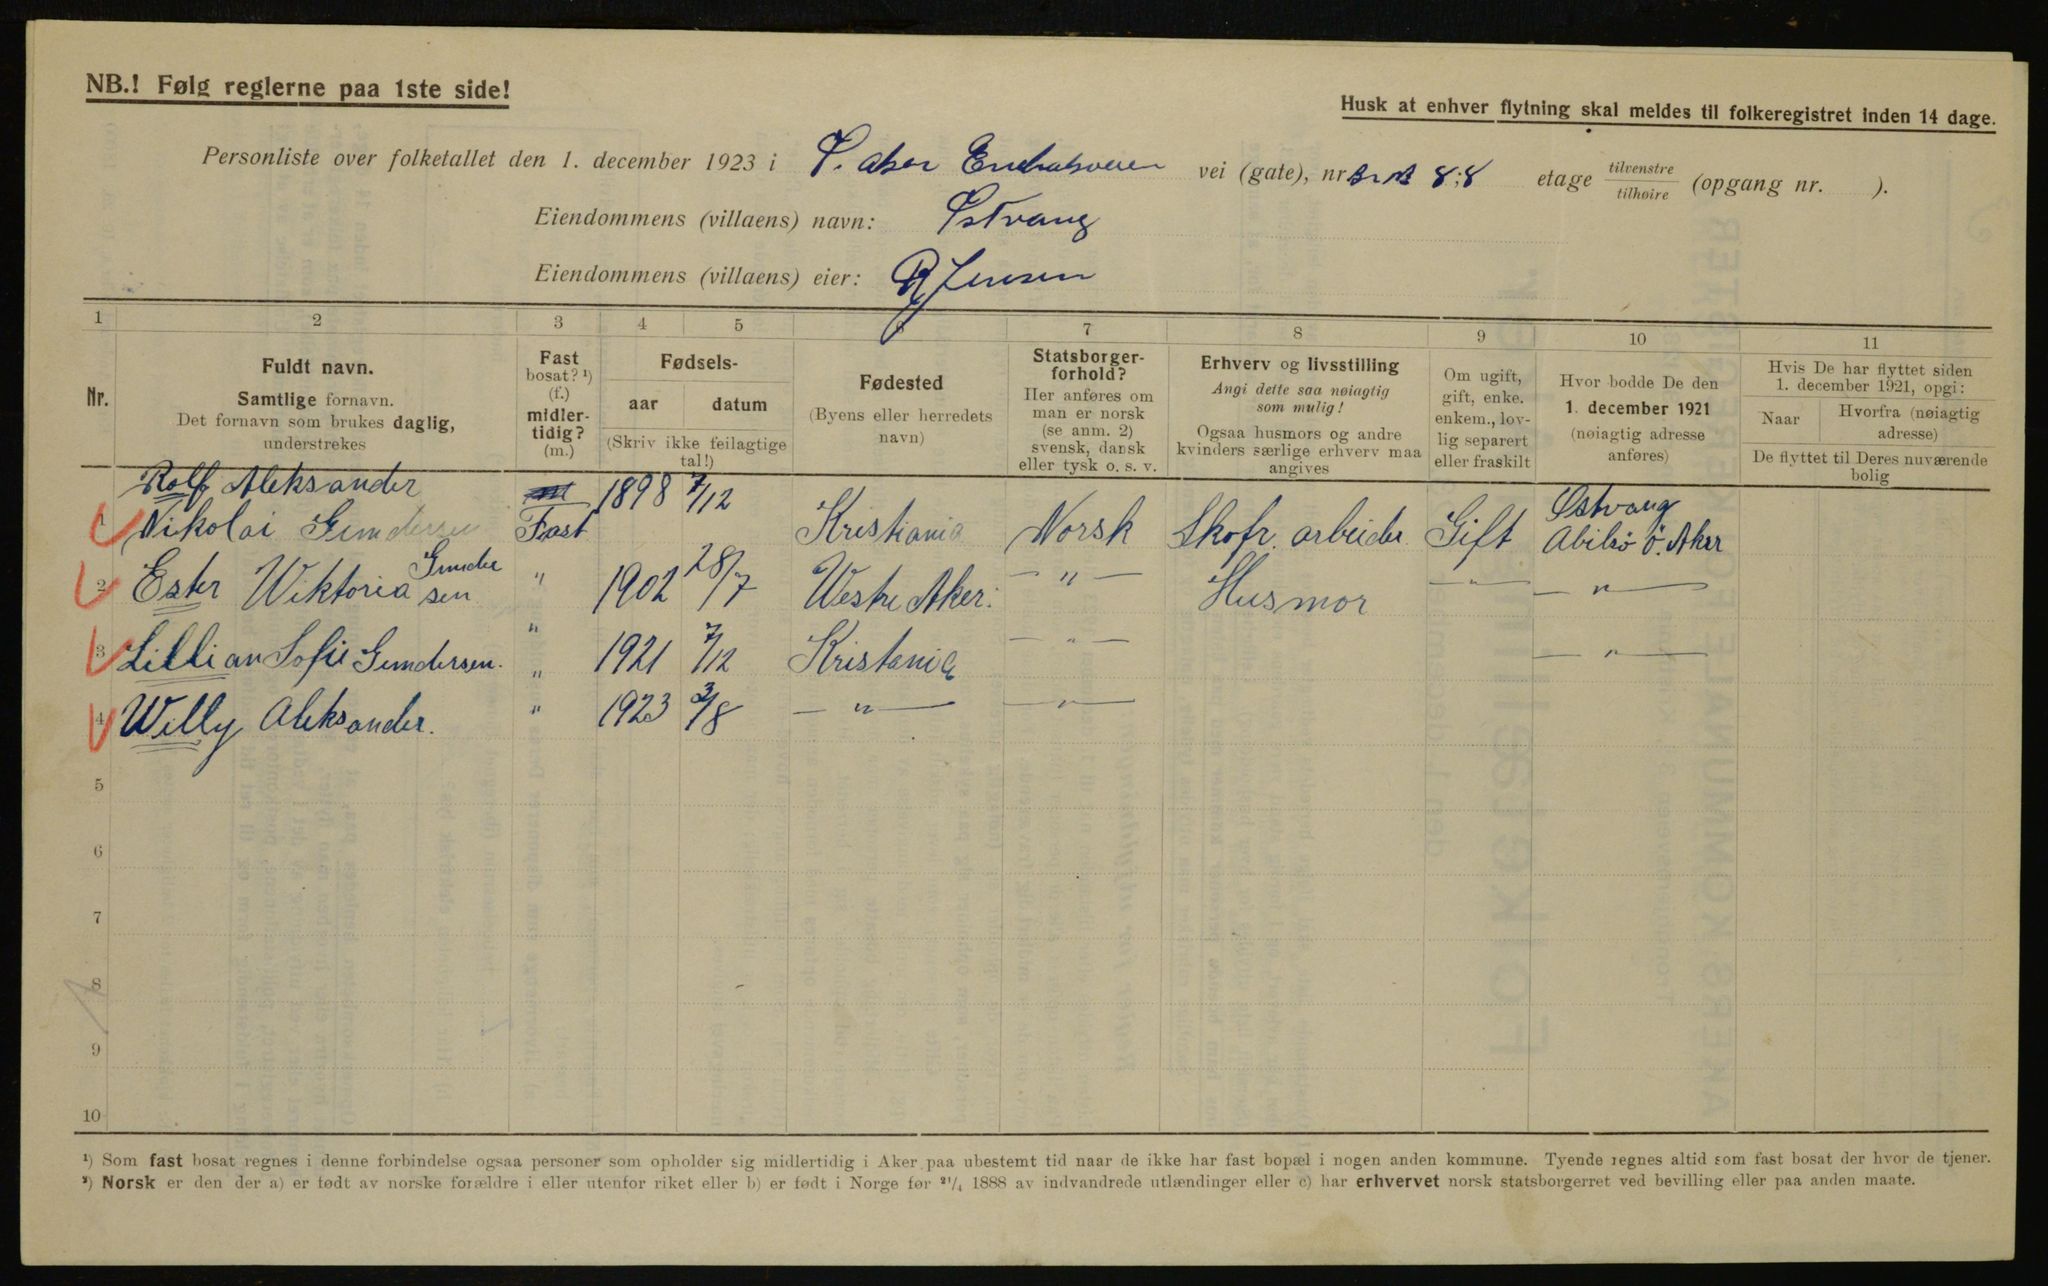 NB.! Følg reglerne paa 1ste side!
Husk at enhver flytning skal meldes til folkeregistret inden 14 dage.
Personliste over folketallet den 1. december 1923 i Ø. Aker Enebakveien vei (gate), nr. 8;8 etage tilvenstre/tilhøire (opgang nr. ).
Eiendommens (villaens) navn: Østvang
Eiendommens (villaens) eier: R Jensen
1 2 3 4 5 6 7 8 9 10 11
Nr.
Fuldt navn.
Samtlige fornavn.
Det fornavn som brukes daglig, understrekes
Fast bosat? ¹) (f.) midlertidig? (m.)
Fødsels-
aar datum
(Skriv ikke feilagtige tal!)
Fødested
(Byens eller herredets navn)
Statsborgerforhold?
Her anføres om man er norsk (se anm. 2) svensk, dansk eller tysk o. s. v.
Erhverv og livsstilling
Angi dette saa nøiagtig som mulig!
Ogsaa husmors og andre kvinders særlige erhverv maa angives
Om ugift, gift, enke. enkem., lovlig separert eller fraskilt
Hvor bodde De den 1. december 1921 (nøiagtig adresse anføres)
Hvis De har flyttet siden 1. december 1921, opgi:
Naar Hvorfra (nøiagtig adresse)
De flyttet til Deres nuværende bolig
Rolf Aleksander 1898 7/12 Østvang
1 Nikolai Gundersen Fast Kristiania Norsk Skofr. arbeider Gift Abilsö Ö. Aker
2 Ester Wiktoria Gundersen " 1902 28/7 Westre Aker. — " — Husmor — " — — " —
3 Lillian Sofie Gundersen. " 1921 7/12 Kristania — " — — " —
4 Willy Aleksander. " 1923 3/8 — " — — " —
5
6
7
8
9
10
¹) Som fast bosat regnes i denne forbindelse ogsaa personer som opholder sig midlertidig i Aker paa ubestemt tid naar de ikke har fast bopæl i nogen anden kommune. Tyende regnes altid som fast bosat der hvor de tjener.
²) Norsk er den der a) er født av norske forældre i eller utenfor riket eller b) er født i Norge før 21/4 1888 av indvandrede utlændinger eller c) har erhvervet norsk statsborgerret ved bevilling eller paa anden maate.